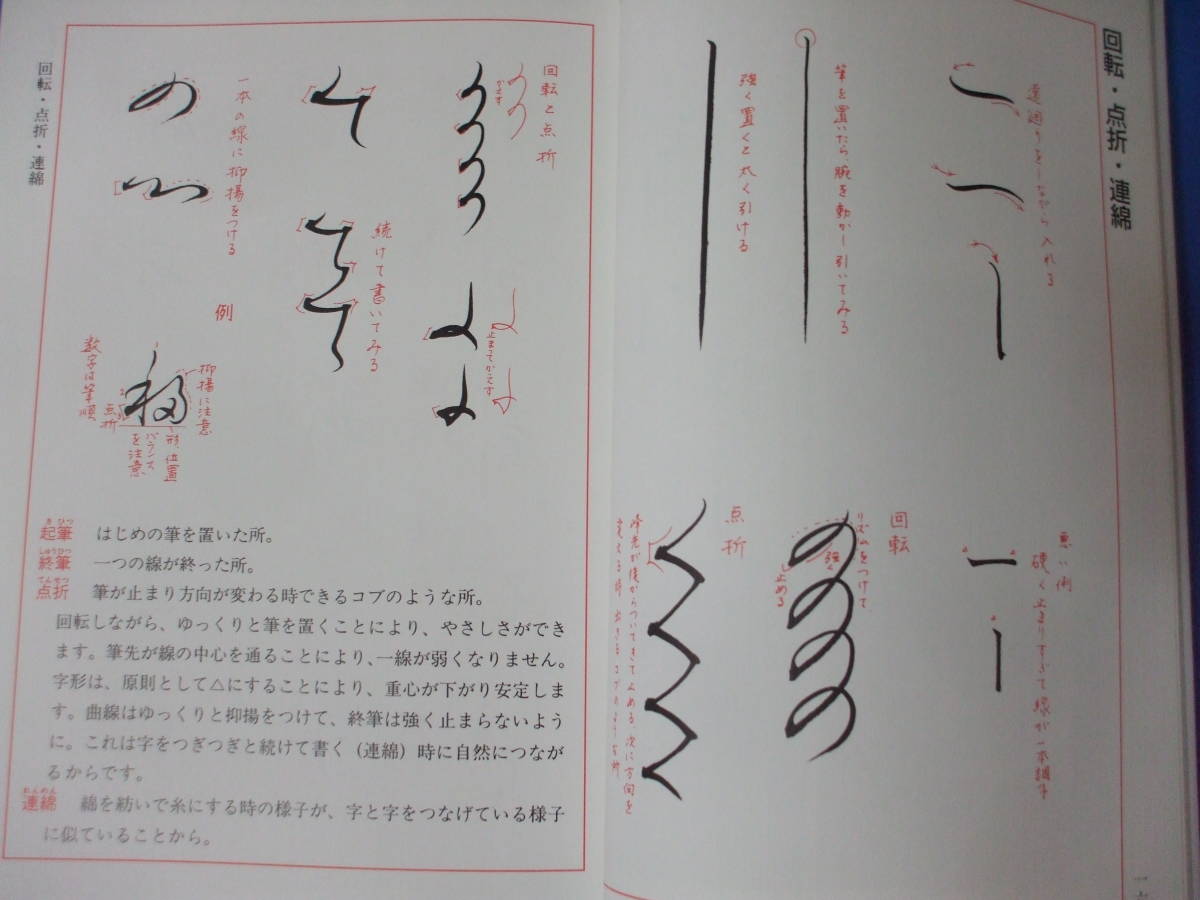 回転・点折・連綿
逆廻りをしながら入れる
筆を置いたら、腕を動かし引いてみる
強く置くと太く引ける
悪い例
硬く止まりすぎて線が一本調子
回転
リズムをつけて
強く
止める
点折
回転と点折
かえす
止まってかえす
続けて書いてみる
一本の線に抑揚をつける
例
抑揚に注意
形、位置
バランス
を注意
点折
数字は筆順
1
2
回転・点折・連綿
きひつ
起筆 はじめの筆を置いた所。
しゅうひつ
終筆 一つの線が終った所。
てんせつ
点折 筆が止まり方向が変わる時できるコブのような所。
回転しながら、ゆっくりと筆を置くことにより、やさしさができ
ます。筆先が線の中心を通ることにより、一線が弱くなりません。
字形は、原則として△にすることにより、重心が下がり安定しま
す。曲線はゆっくりと抑揚をつけて、終筆は強く止まらないよう
に。これは字をつぎつぎと続けて書く（連綿）時に自然につなが
るからです。
れんめん
連綿 綿を紡いで糸にする時の様子が、字と字をつなげている様子
に似ていることから。